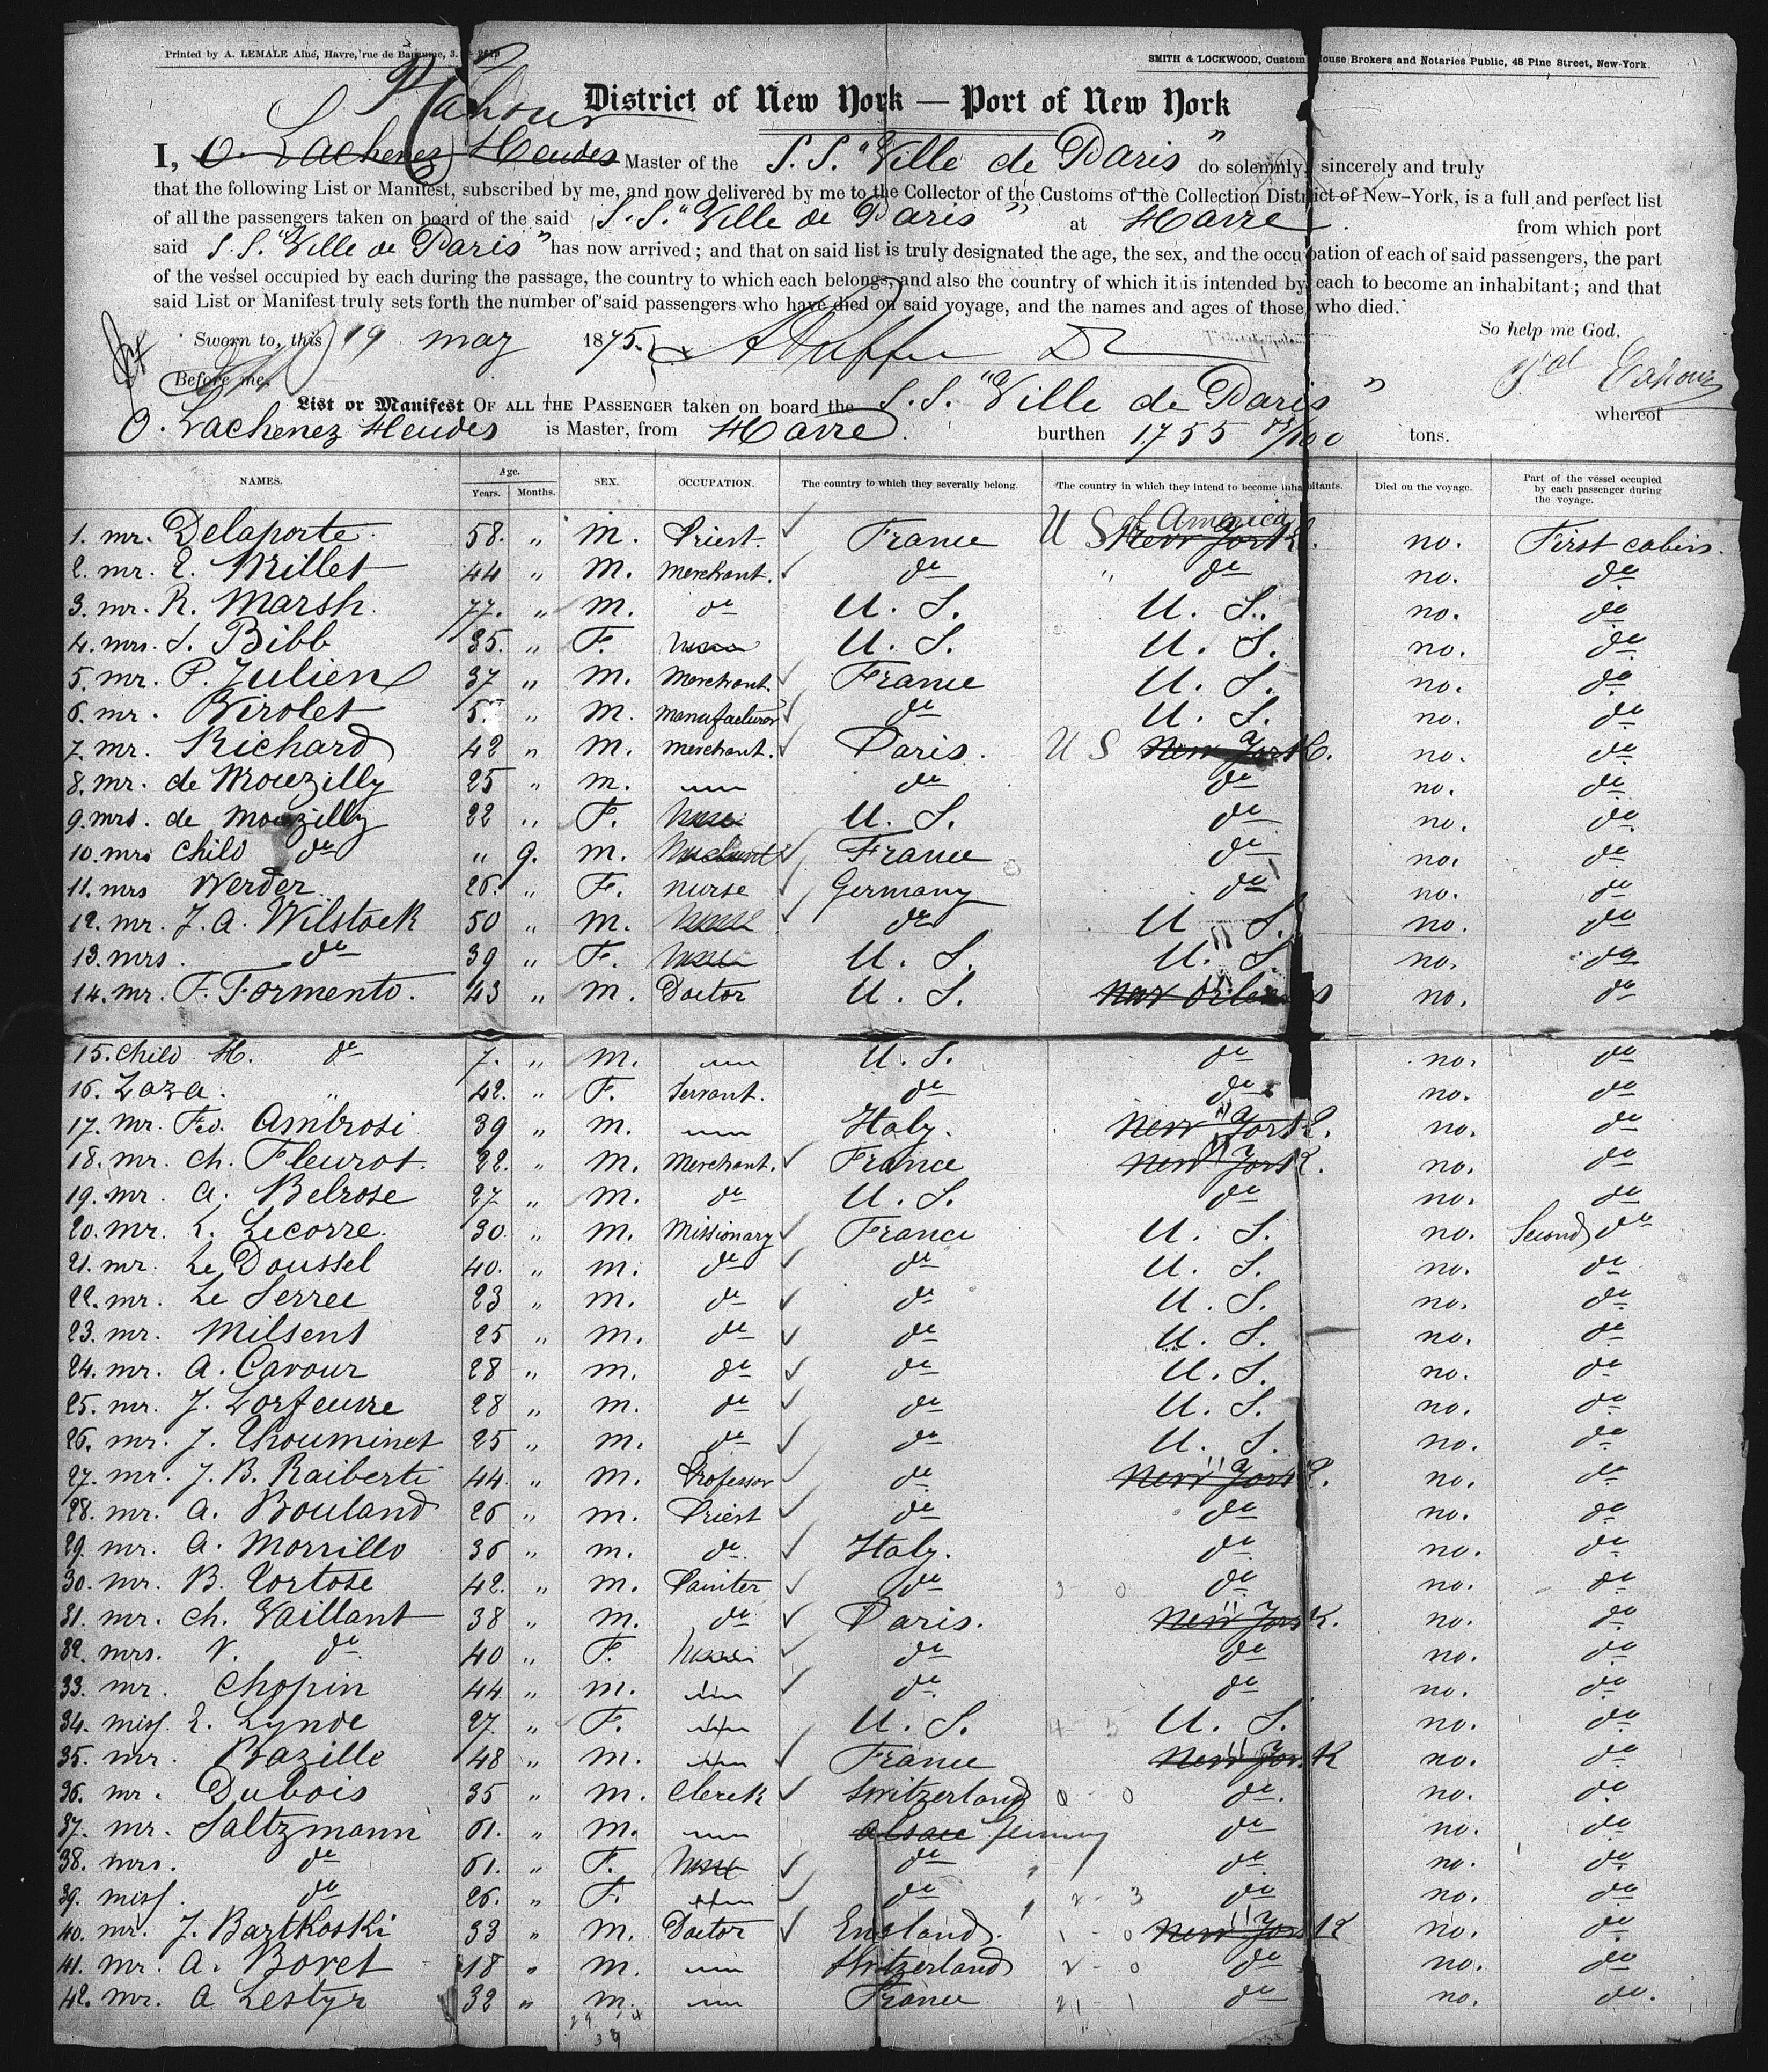 Printed by A. LEMALE Aîné, Havre, rue de Bapaume, 3.
SMITH & LOCKWOOD, Custom House Brokers and Notaries Public, 48 Pine Street, New-York.
Cahour
District of New York — Port of New York
I, O. Lachenez Heudes Master of the S.S. "Ville de Paris" do solemnly, sincerely and truly
that the following List or Manifest, subscribed by me, and now delivered by me to the Collector of the Customs of the Collection District of New-York, is a full and perfect list
of all the passengers taken on board of the said S.S. "Ville de Paris" at Havre from which port
said S.S. "Ville de Paris" has now arrived; and that on said list is truly designated the age, the sex, and the occupation of each of said passengers, the part
of the vessel occupied by each during the passage, the country to which each belongs, and also the country of which it is intended by each to become an inhabitant; and that
said List or Manifest truly sets forth the number of said passengers who have died on said voyage, and the names and ages of those who died.
So help me God.
Sworn to, this 19 may 1875.
Before me,
Cahour
List or Manifest OF ALL THE PASSENGER taken on board the S.S. "Ville de Paris" whereof
O. Lachenez Heudes is Master, from Havre. burthen 1755 /100 tons.
NAMES. Age. Years. Months. SEX. OCCUPATION. The country to which they severally belong. The country in which they intend to become inhabitants. Died on the voyage. Part of the vessel occupied by each passenger during the voyage.
1. mr. Delaporte. 58. " m. Priest. France U S of America New York. no. First cabin.
2. mr. E. Millet 44 " m. merchant. do " do no. do
3. mr. R. Marsh. 77. " m. do U. S. U. S. no. do
4. mrs. S. Bibb 35. " F. U. S. U. S. no. do
5. mr. P. Julien 37 " m. Merchant. France U. S. no. do
6. mr. Birolet 5 " m. manufacturer do U. S. no. do
7. mr. Richard 42 " m. merchant. Paris. U S New York. no. do
8. mr. de Mouzilly 25 " m. do do no. do
9. mrs. de Mouzilly 22 " F. U. S. do no. do
10. mrs child do " 9. m. France do no. do
11. mrs Werder 26. " F. nurse Germany do no. do
12. mr. J. A. Wilstack 50 " m. do U. S. no. do
13. mrs. do 39 " F. U. S. U. S. no. do
14. mr. F. Formento. 43 " m. Doctor U. S. New Orleans no. do
15. child H. do 7. " m. U. S. do no. do
16. Zaza. " 42. " F. servant. do do no. do
17. mr. Fed. Ambrosi 39 " m. Italy. New York. no. do
18. mr. ch. Fleurot. 22. " m. Merchant. France New York. no. do
19. mr. A. Belrose 27 " m. do U. S. do no. do
20. mr. L. Lecorre. 30. " m. Missionary France U. S. no. Second do
21. mr. Le Doussel 40. " m. do do U. S. no. do
22. mr. Le Serrec 23 " m. do do U. S. no. do
23. mr. Milsent 25 " m. do do U. S. no. do
24. mr. A. Cavour 28 " m. do do U. S. no. do
25. mr. J. Lorfeuvre 28 " m. do do U. S. no. do
26. mr. J. Thouminet 25 " m. do do U. S. no. do
27. mr. J. B. Raiberti 44. " m. Professor do New York. no. do
28. mr. A. Bouland 26 " m. Priest do do no. do
29. mr. A. Morrillo 36 " m. do. Italy. do no. do
30. mr. B. Tortose 42. " m. Painter do 3 - 0 do no. do
31. mr. ch. Vaillant 38 " m. do Paris. New York. no. do
32. mrs. V. do 40 " F. do do no. do
33. mr. Chopin 44. " m. do do no. do
34. miss. E. Lynde 27. " F. U. S. 4 - 5 U. S. no. do
35. mr. Bazille 48 " m. France New York no. do
36. mr. Dubois 35 " m. Clerck Switzerland 0 - 0 do. no. do
37. mr. Saltzmann 61. " m. Alsace Germany do no. do
38. mrs. do 61. " F. do do no. do
39. miss. do 26. " F. do 2 - 3 do no. do
40. mr. J. Bartkoski 33 " m. Doctor England. 1 - 0 New York no. do
41. mr. A. Boret 18 " m. Switzerland 2 - 0 do no. do
42. mr. A Lestyr 32 " m. France 21 - 1 do no. do.